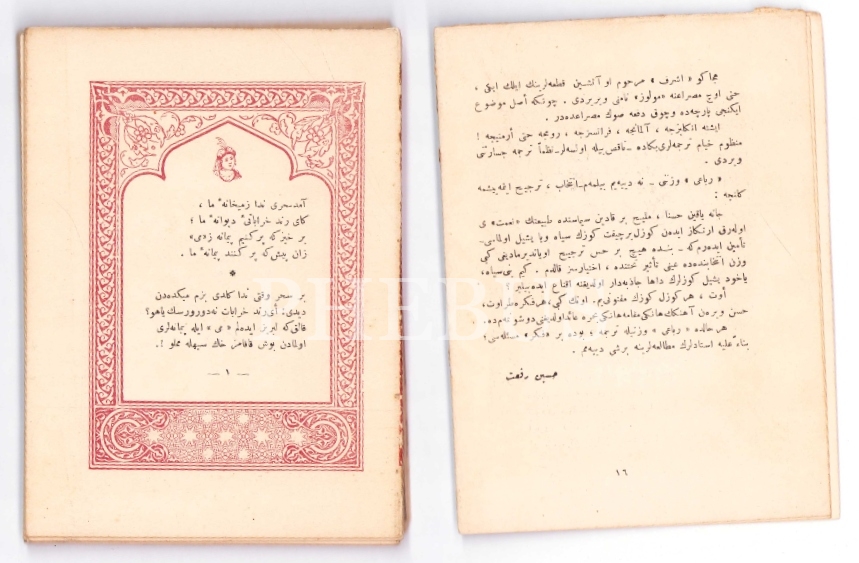 آمد سحری ندا زمیخانهٔ ما ،
کای رند خراباتی دیوانهٔ ما ؛
بر خیز که پر کنیم پیمانه ز«می»
زان پیش که پر کنند پیمانهٔ ما .
*
بر سحر وقتی ندا کلدی بزم میکده‌دن
دیدی: أی رند خرابات نه‌دورورسك یاهو؟
قالق که لبریز ایده‌لم « می » ایله پیمانه‌لری
اولمادن بوش قافامز خاك سیهله مملو !.
— ١ —
« اشرف » مرحوم او آتشین قطعه‌لرینك ایلك ایکی ،
حتی اوچ مصراعنه «مولوز» نامنی ویریردی . چونکه أصل موضوع
ایکنجی پارچه‌ده وچوق دفعه صوك مصراعده‌در .
ایشته انکلیزجه ، آلمانجه ، فرانسزجه ، رومجه حتی أرمنیجه !
منظوم خیام ترجمه‌لری بکاده ـ ناقص بیله اولسه‌لر ـ نظماً ترجمه جسارتنی
ویردی .
« رباعی » وزنی ـ نه دییه‌یم بیلمه‌م ـ انتخاب ، ترجیح ایتمه‌ییشمه
کلنجه :
جانه یاقین حسنا ، ملیح بر قادین سیماسنده طبیعتك «نعمت» ی
اوله‌رق ارتکاز ایده‌ن کوزل برچیفت کوزك سیاه ویا یشیل اولماسی ـ
تأمین ایده‌رم که ـ بنده هیچ بر حس ترجیح اویاندیرمادیغی کبی
وزن انتخابنده‌ده عینی تأثیر تحتنده ، اختیارسز قالدم . کیم بی‌سیاه ،
یاخود یشیل کوزلرك داها جاذبه‌دار اولدیغنه اقناع ایده‌بیلیر
أوت ، هر کوزل کوزك مفتونی‌یم . اونك کبی ، هر فکره طراوت ،
حسن ویره‌ن آهنکك هانکی مقامه هانکی بحره عائد اولدیغنی دوشونه‌م‌ده .
هر حالده « رباعی » وزنیله ترجمه ؛ بوده بر «فکر» مسئله‌سی ؛
بناءً علیه استادلرك مطالعه‌لرینه برشی دییه‌مم .
حسین رفعت
١٦
PHEBUS